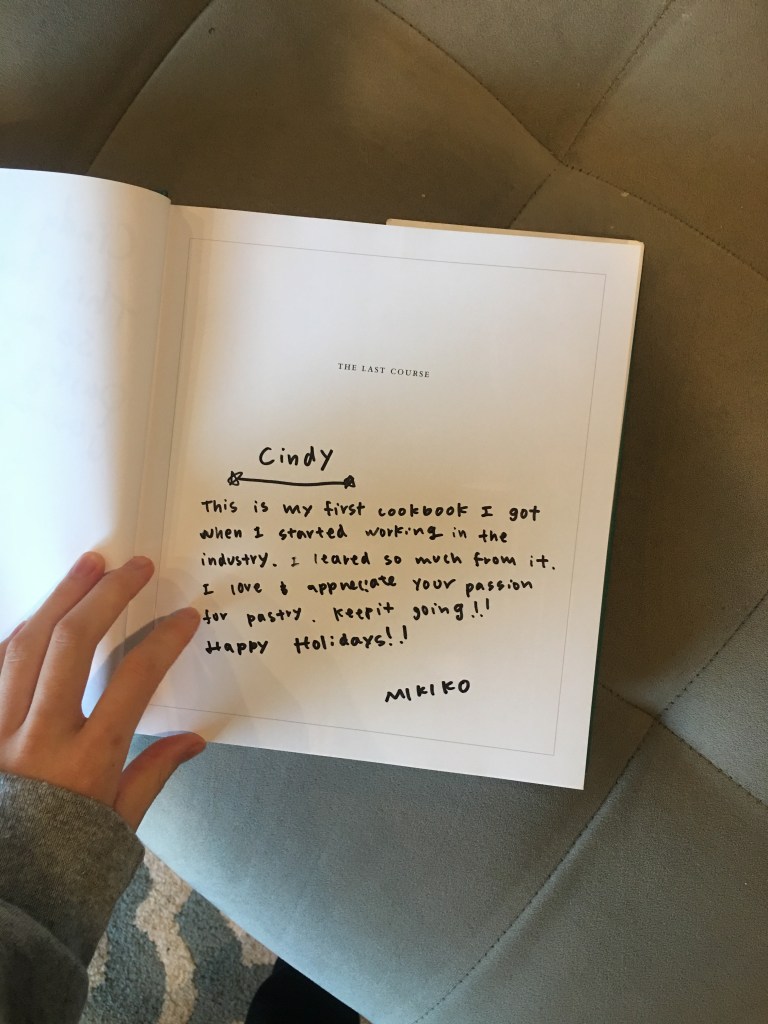 THE LAST COURSE
Cindy
This is my first cookbook I got
when I started working in the
industry. I leared so much from it.
I love & appreciate your passion
for pastry. Keep it going!!
Happy Holidays!!
MIKIKO